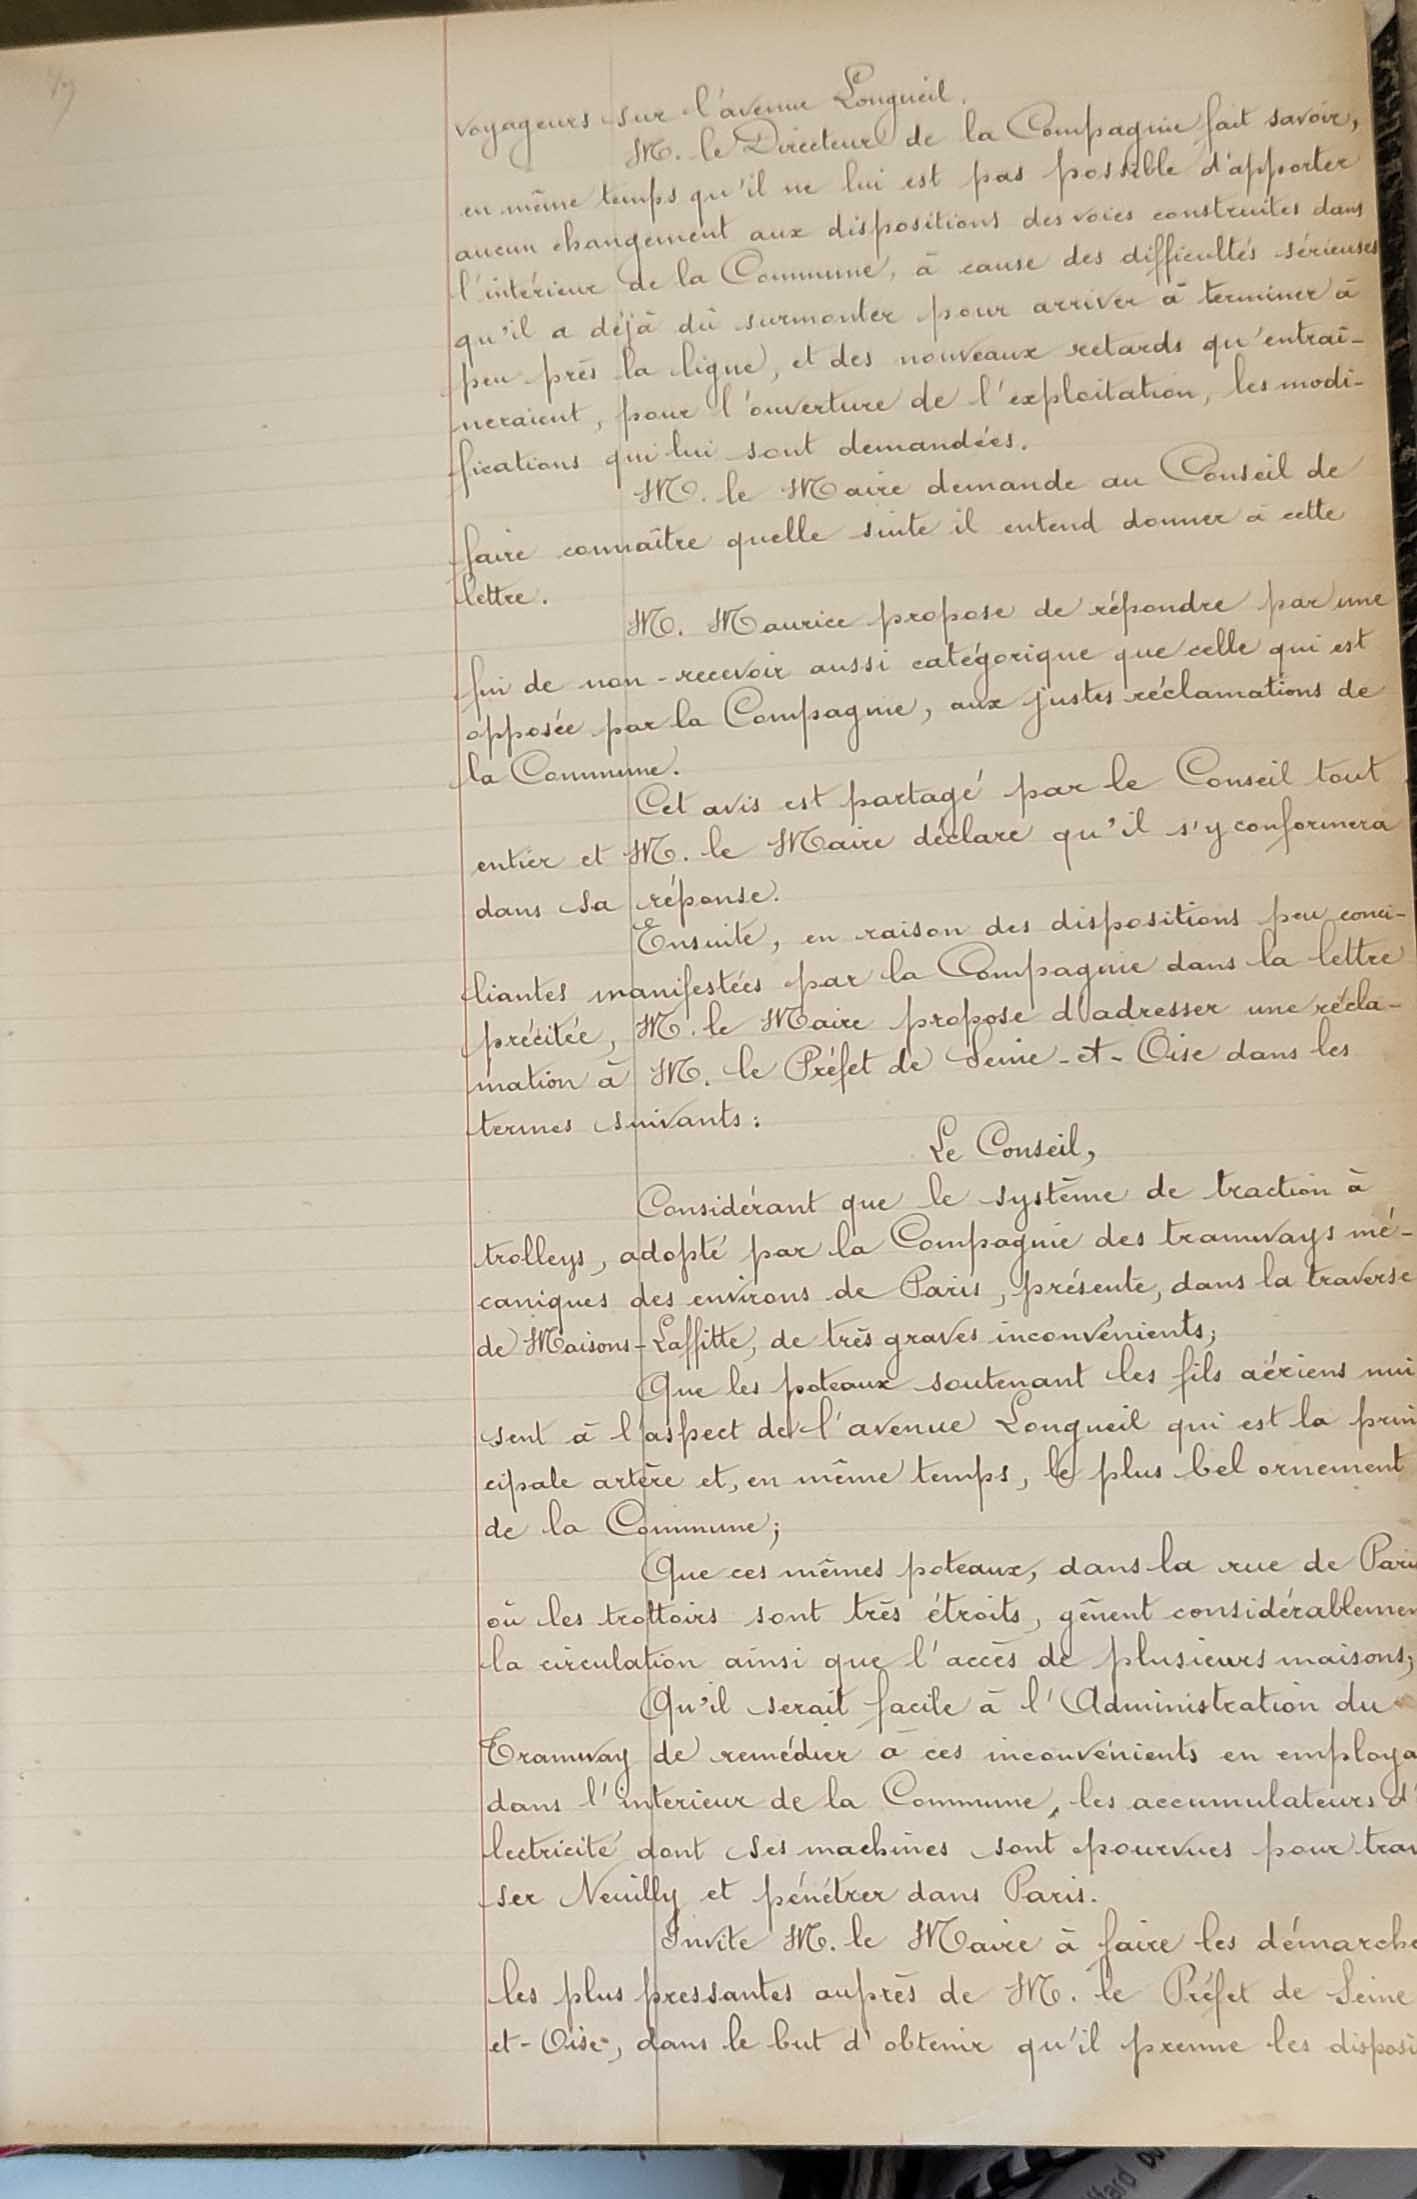 voyageurs sur l'avenue Longueil.
M. le Directeur de la Compagnie fait savoir,
en même temps qu'il ne lui est pas possible d'apporter
aucun changement aux dispositions des voies construites dans
l'intérieur de la Commune, à cause des difficultés sérieuses
qu'il a déjà dû surmonter pour arriver à terminer à
peu près la ligne, et des nouveaux retards qu'entraî-
neraient, pour l'ouverture de l'exploitation, les modi-
fications qui lui sont demandées.
M. le Maire demande au Conseil de
faire connaître quelle suite il entend donner à cette
lettre.
M. Maurice propose de répondre par une
fin de non-recevoir aussi catégorique que celle qui est
opposée par la Compagnie, aux justes réclamations de
la Commune.
Cet avis est partagé par le Conseil tout
entier et M. le Maire déclare qu'il s'y conformera
dans sa réponse.
Ensuite, en raison des dispositions peu conci-
liantes manifestées par la Compagnie dans la lettre
précitée, M. le Maire propose d'adresser une récla-
mation à M. le Préfet de Seine-et-Oise dans les
termes suivants:
Le Conseil,
Considérant que le système de traction à
trolleys, adopté par la Compagnie des tramways mé-
caniques des environs de Paris, présente, dans la traverse
de Maisons-Laffitte, de très graves inconvénients;
Que les poteaux soutenant les fils aériens nui
sent à l'aspect de l'avenue Longueil qui est la prin
cipale artère et, en même temps, le plus bel ornement
de la Commune;
Que ces mêmes poteaux, dans la rue de Paris
où les trottoirs sont très étroits, gênent considérablemen
la circulation ainsi que l'accès de plusieurs maisons;
Qu'il serait facile à l'Administration du
Tramway de remédier à ces inconvénients en employa
dans l'interieur de la Commune, les accumulateurs d'
lectricité dont ses machines sont pourvues pour trav
ser Neuilly et pénétrer dans Paris.
Invite M. le Maire à faire les démarche
les plus pressantes auprès de M. le Préfet de Seine
et-Oise, dans le but d'obtenir qu'il prenne les disposi